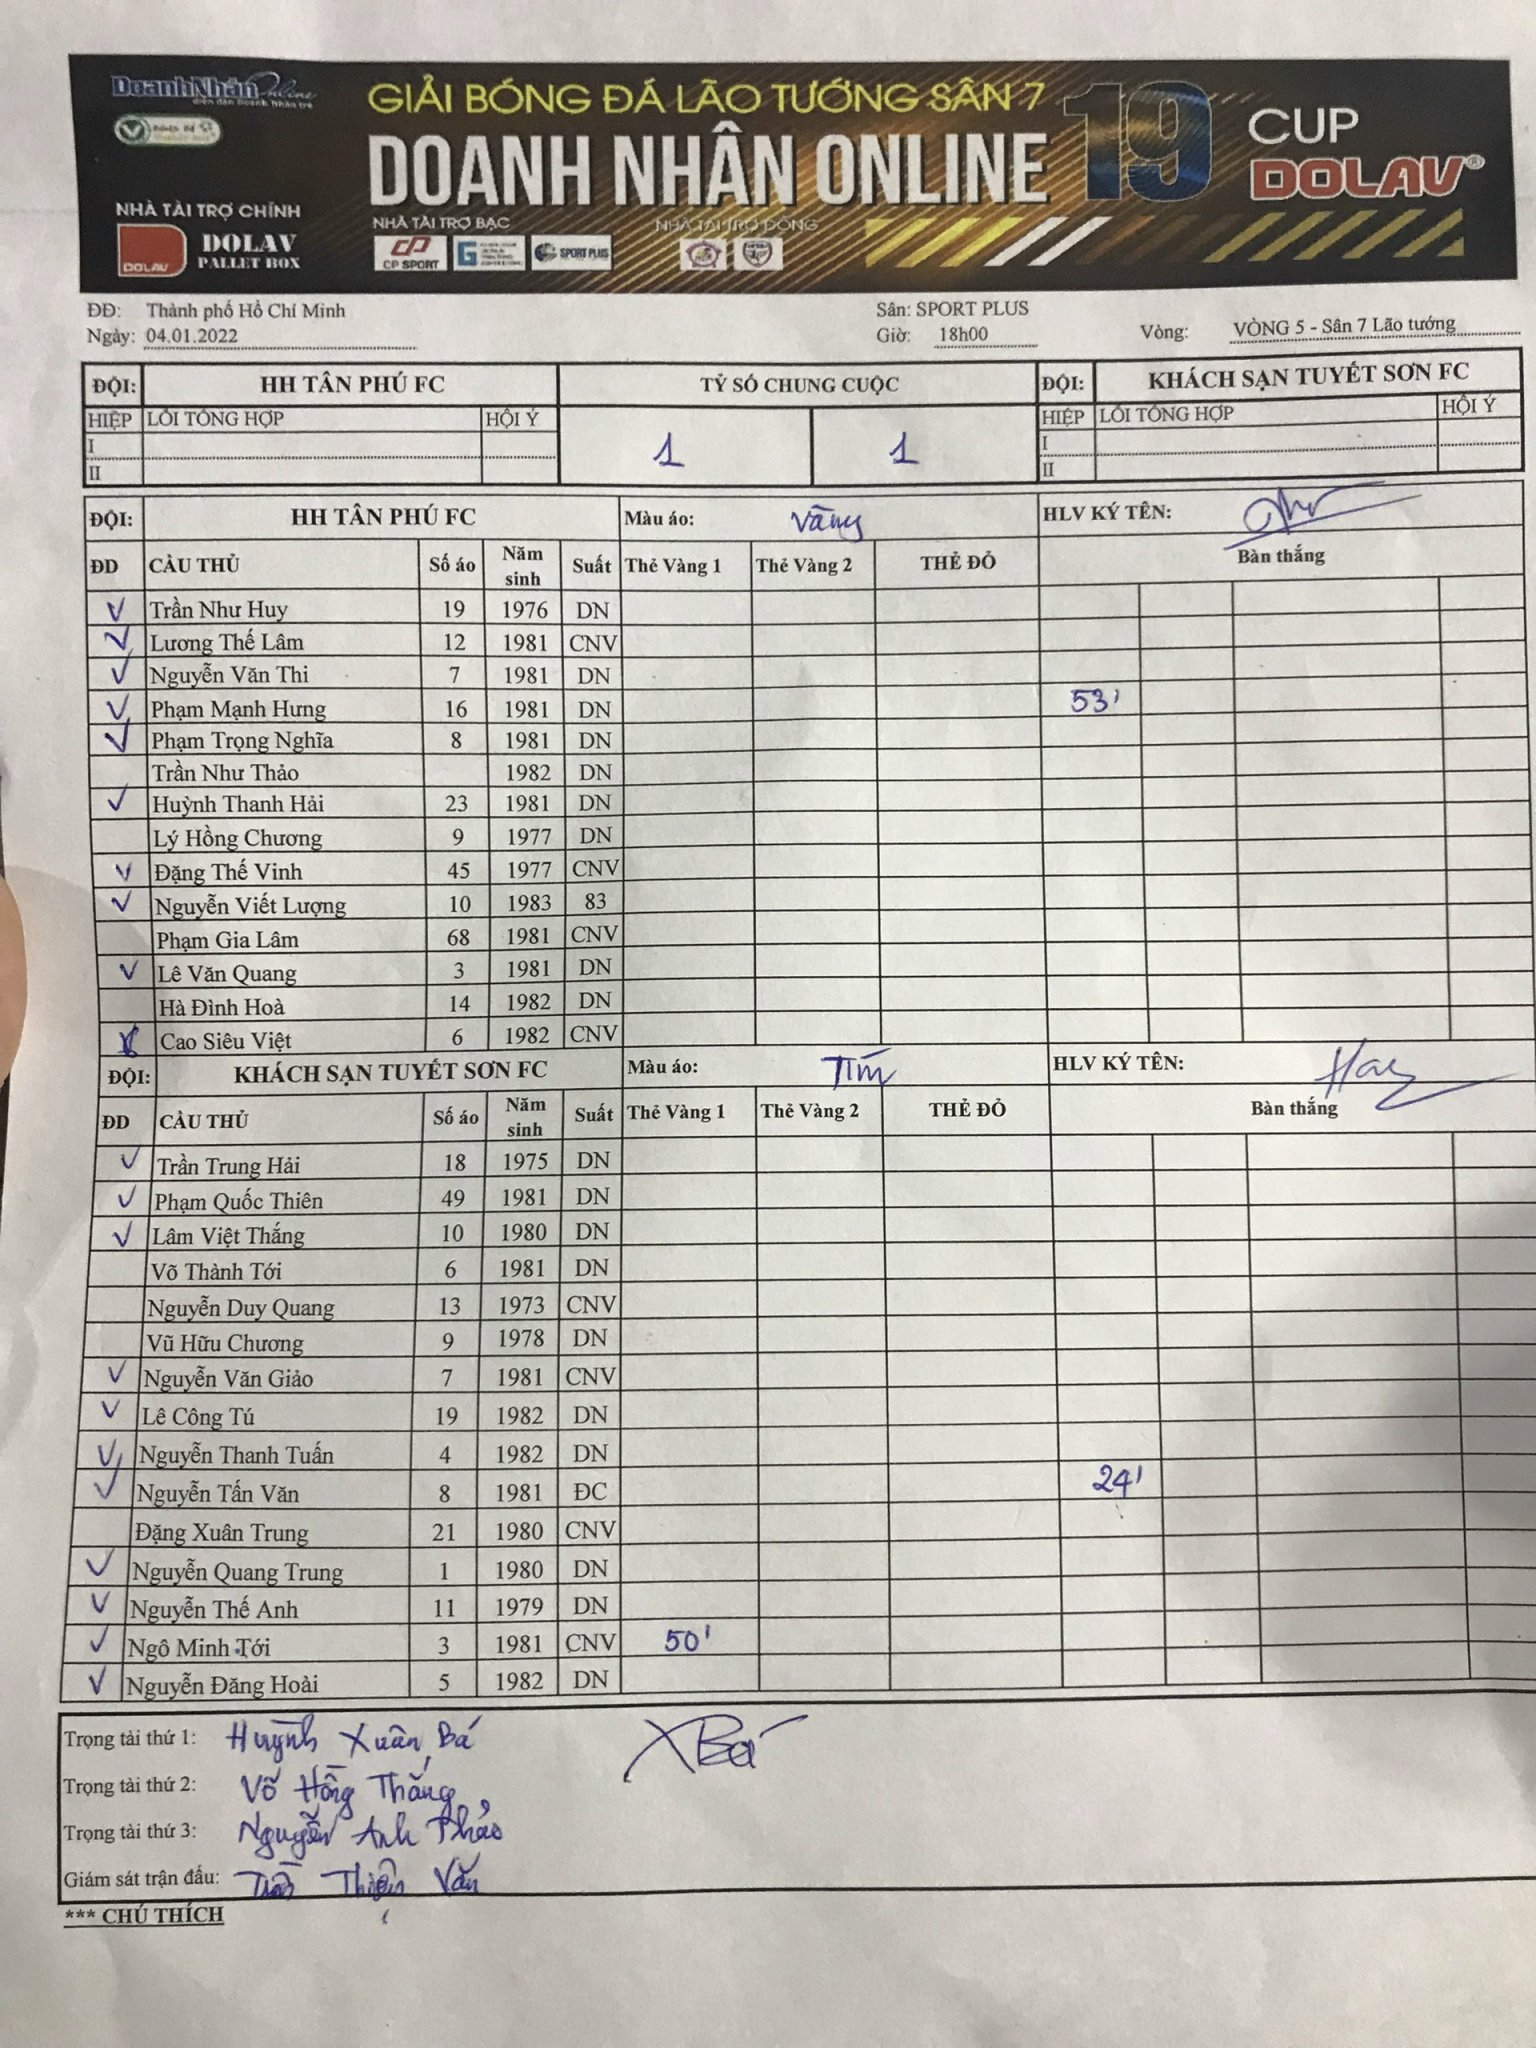 DoanhNhânOnline
diễn đàn Doanh Nhân trẻ
GIẢI BÓNG ĐÁ LÃO TƯỚNG SÂN 7
DOANH NHÂN ONLINE 19
CUP
DOLAV®
NHÀ TÀI TRỢ CHÍNH
DOLAV
DOLAV
PALLET BOX
NHÀ TÀI TRỢ BẠC
CP SPORT
SPORT PLUS
NHÀ TÀI TRỢ ĐỒNG
ĐĐ: Thành phố Hồ Chí Minh Sân: SPORT PLUS
Ngày: 04.01.2022 Giờ: 18h00 Vòng: VÒNG 5 - Sân 7 Lão tướng
ĐỘI: HH TÂN PHÚ FC TỶ SỐ CHUNG CUỘC ĐỘI: KHÁCH SẠN TUYẾT SƠN FC
HIỆP LỖI TỔNG HỢP HỘI Ý HIỆP LỖI TỔNG HỢP HỘI Ý
I 1 1 I
II II
ĐỘI: HH TÂN PHÚ FC Màu áo: Vàng HLV KÝ TÊN:
ĐD CẦU THỦ Số áo Năm sinh Suất Thẻ Vàng 1 Thẻ Vàng 2 THẺ ĐỎ Bàn thắng
Trần Như Huy 19 1976 DN
Lương Thế Lâm 12 1981 CNV
Nguyễn Văn Thi 7 1981 DN
Phạm Mạnh Hưng 16 1981 DN 53'
Phạm Trọng Nghĩa 8 1981 DN
Trần Như Thảo 1982 DN
Huỳnh Thanh Hải 23 1981 DN
Lý Hồng Chương 9 1977 DN
Đặng Thế Vinh 45 1977 CNV
Nguyễn Viết Lượng 10 1983 83
Phạm Gia Lâm 68 1981 CNV
Lê Văn Quang 3 1981 DN
Hà Đình Hoà 14 1982 DN
Cao Siêu Việt 6 1982 CNV
ĐỘI: KHÁCH SẠN TUYẾT SƠN FC Màu áo: Tím HLV KÝ TÊN:
ĐD CẦU THỦ Số áo Năm sinh Suất Thẻ Vàng 1 Thẻ Vàng 2 THẺ ĐỎ Bàn thắng
Trần Trung Hải 18 1975 DN
Phạm Quốc Thiên 49 1981 DN
Lâm Việt Thắng 10 1980 DN
Võ Thành Tới 6 1981 DN
Nguyễn Duy Quang 13 1973 CNV
Vũ Hữu Chương 9 1978 DN
Nguyễn Văn Giảo 7 1981 CNV
Lê Công Tú 19 1982 DN
Nguyễn Thanh Tuấn 4 1982 DN
Nguyễn Tấn Văn 8 1981 ĐC 24'
Đặng Xuân Trung 21 1980 CNV
Nguyễn Quang Trung 1 1980 DN
Nguyễn Thế Anh 11 1979 DN
Ngô Minh Tới 3 1981 CNV 50'
Nguyễn Đăng Hoài 5 1982 DN
Trọng tài thứ 1: Huỳnh Xuân Bá XBá
Trọng tài thứ 2: Võ Hồng Thắng
Trọng tài thứ 3: Nguyễn Anh Thảo
Giám sát trận đấu: Trần Thiện Văn
*** CHÚ THÍCH